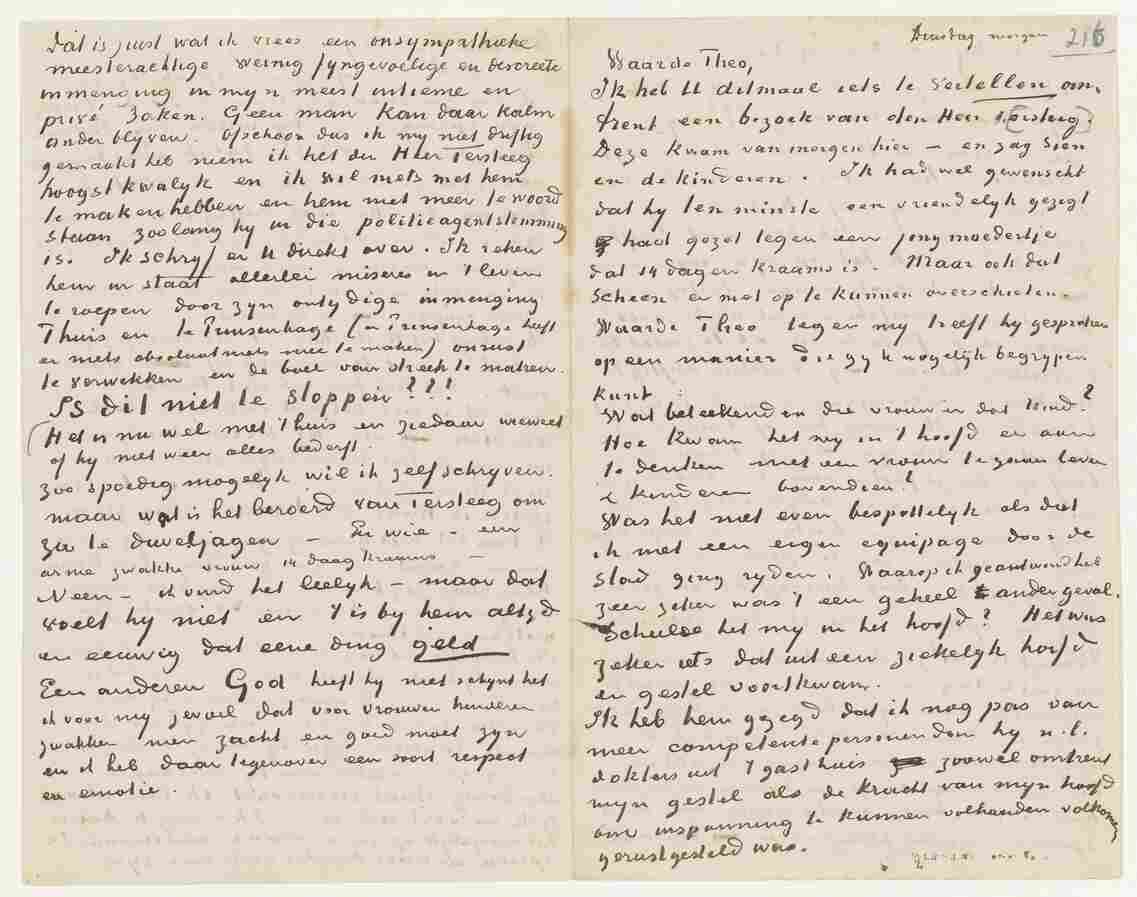 Dat is juist wat ik vrees een onsympathieke
meesterachtige weinig fyngevoelige en discreete
inmenging in myn meest intieme en
privé zaken. Geen man kan daar kalm
onder blyven. Ofschoon dus ik my niet driftig
gemaakt heb neem ik het den Heer Tersteeg
hoogst kwalyk en ik wil niets met hem
te maken hebben en hem niet meer te woord
staan zoolang hy in die politieagentstemming
is. Ik schryf er U direkt over. Ik reken
hem in staat allerlei miseres in 't leven
te roepen door zyn ontydige inmenging
Thuis en te Prinsenhage (in Prinsenhage heeft
er niets absoluut niets mee te maken) onrust
te verwekken en de boel van streek te maken.
Is dit niet te stoppen???!
(Het is nu wel met Thuis en ziedaar wie weet
of hy niet weer alles bederft.
zoo spoedig mogelyk wil ik zelf schryven.
maar wat is het beroerd van Tersteeg om
zoo te duveljagen – En wie – een
arme zwakke vrouw 14 daag kraams –
Neen – ik vind het leelyk – maar dat
voelt hy niet en 't is by hem altyd
en eeuwig dat eene ding geld
Een anderen God heeft hy niet schynt het
ik voor my gevoel dat voor vrouwen kinderen
zwakken men zacht en goed moet zyn
en ik heb daar tegenover een soort respect
en emotie.
Dinsdag morgen 216
Waarde Theo,
Ik heb U ditmaal iets te vertellen om-
trent een bezoek van den Heer Tersteeg.
Deze kwam van morgen hier – en zag Sien
en de kinderen. Ik had wel gewenscht
dat hy ten minste een vriendelyk gezigt
had gezet tegen een jong moedertje
dat 14 dagen kraams is. Maar ook dat
scheen er niet op te kunnen overschieten.
Waarde Theo tegen my heeft hy gesproken
op een manier die gy U mogelyk begrypen
kunt
Wat beteekenden die vrouw en dat kind?
Hoe kwam het my in 't hoofd er aan
te denken met een vrouw te gaan leven
& kinderen bovendien?
Was het niet even bespottelyk als dat
ik met een eigen equipage door de
stad ging ryden. Waarop ik geantwoord heb
zeer zeker was 't een geheel ander geval.
Scheelde het my in het hoofd? Het was
zeker iets dat uit een ziekelyk hoofd
en gestel voortkwam.
Ik heb hem gezegd dat ik nog pas van
meer competente personen dan hy n.l.
dokters uit 't gasthuis zoowel omtrent
myn gestel als de kracht van myn hoofd
om inspanning te kunnen volhouden volkomen
gerustgesteld was.